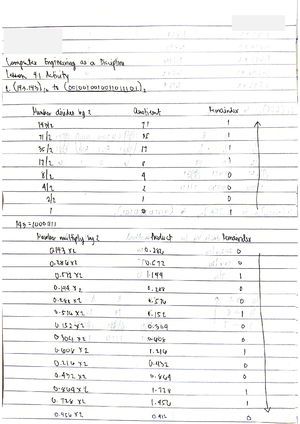 Computer Engineering as a Discipline
Lesson 4.1 Activity
Number divides by 2 Quotient Remainder
143/2 71 1
71/2 35 1
35/2 17 1
17/2 8 1
8/2 4 0
4/2 2 0
2/2 1 0
1 0 1
Number multiply by 2 Product Remainder
0.143 x2 0.286 0
0.286 x2 0.572 0
0.572 x2 1.144 1
0.144 x2 0.288 0
0.288 x2 0.576 0
0.576 x2 1.152 1
0.152 x2 0.304 0
0.304 x2 0.608 0
0.608 x2 1.216 1
0.216 x2 0.432 0
0.432 x2 0.864 0
0.864 x2 1.728 1
0.728 x2 1.456 1
0.456 x2 0.912 0